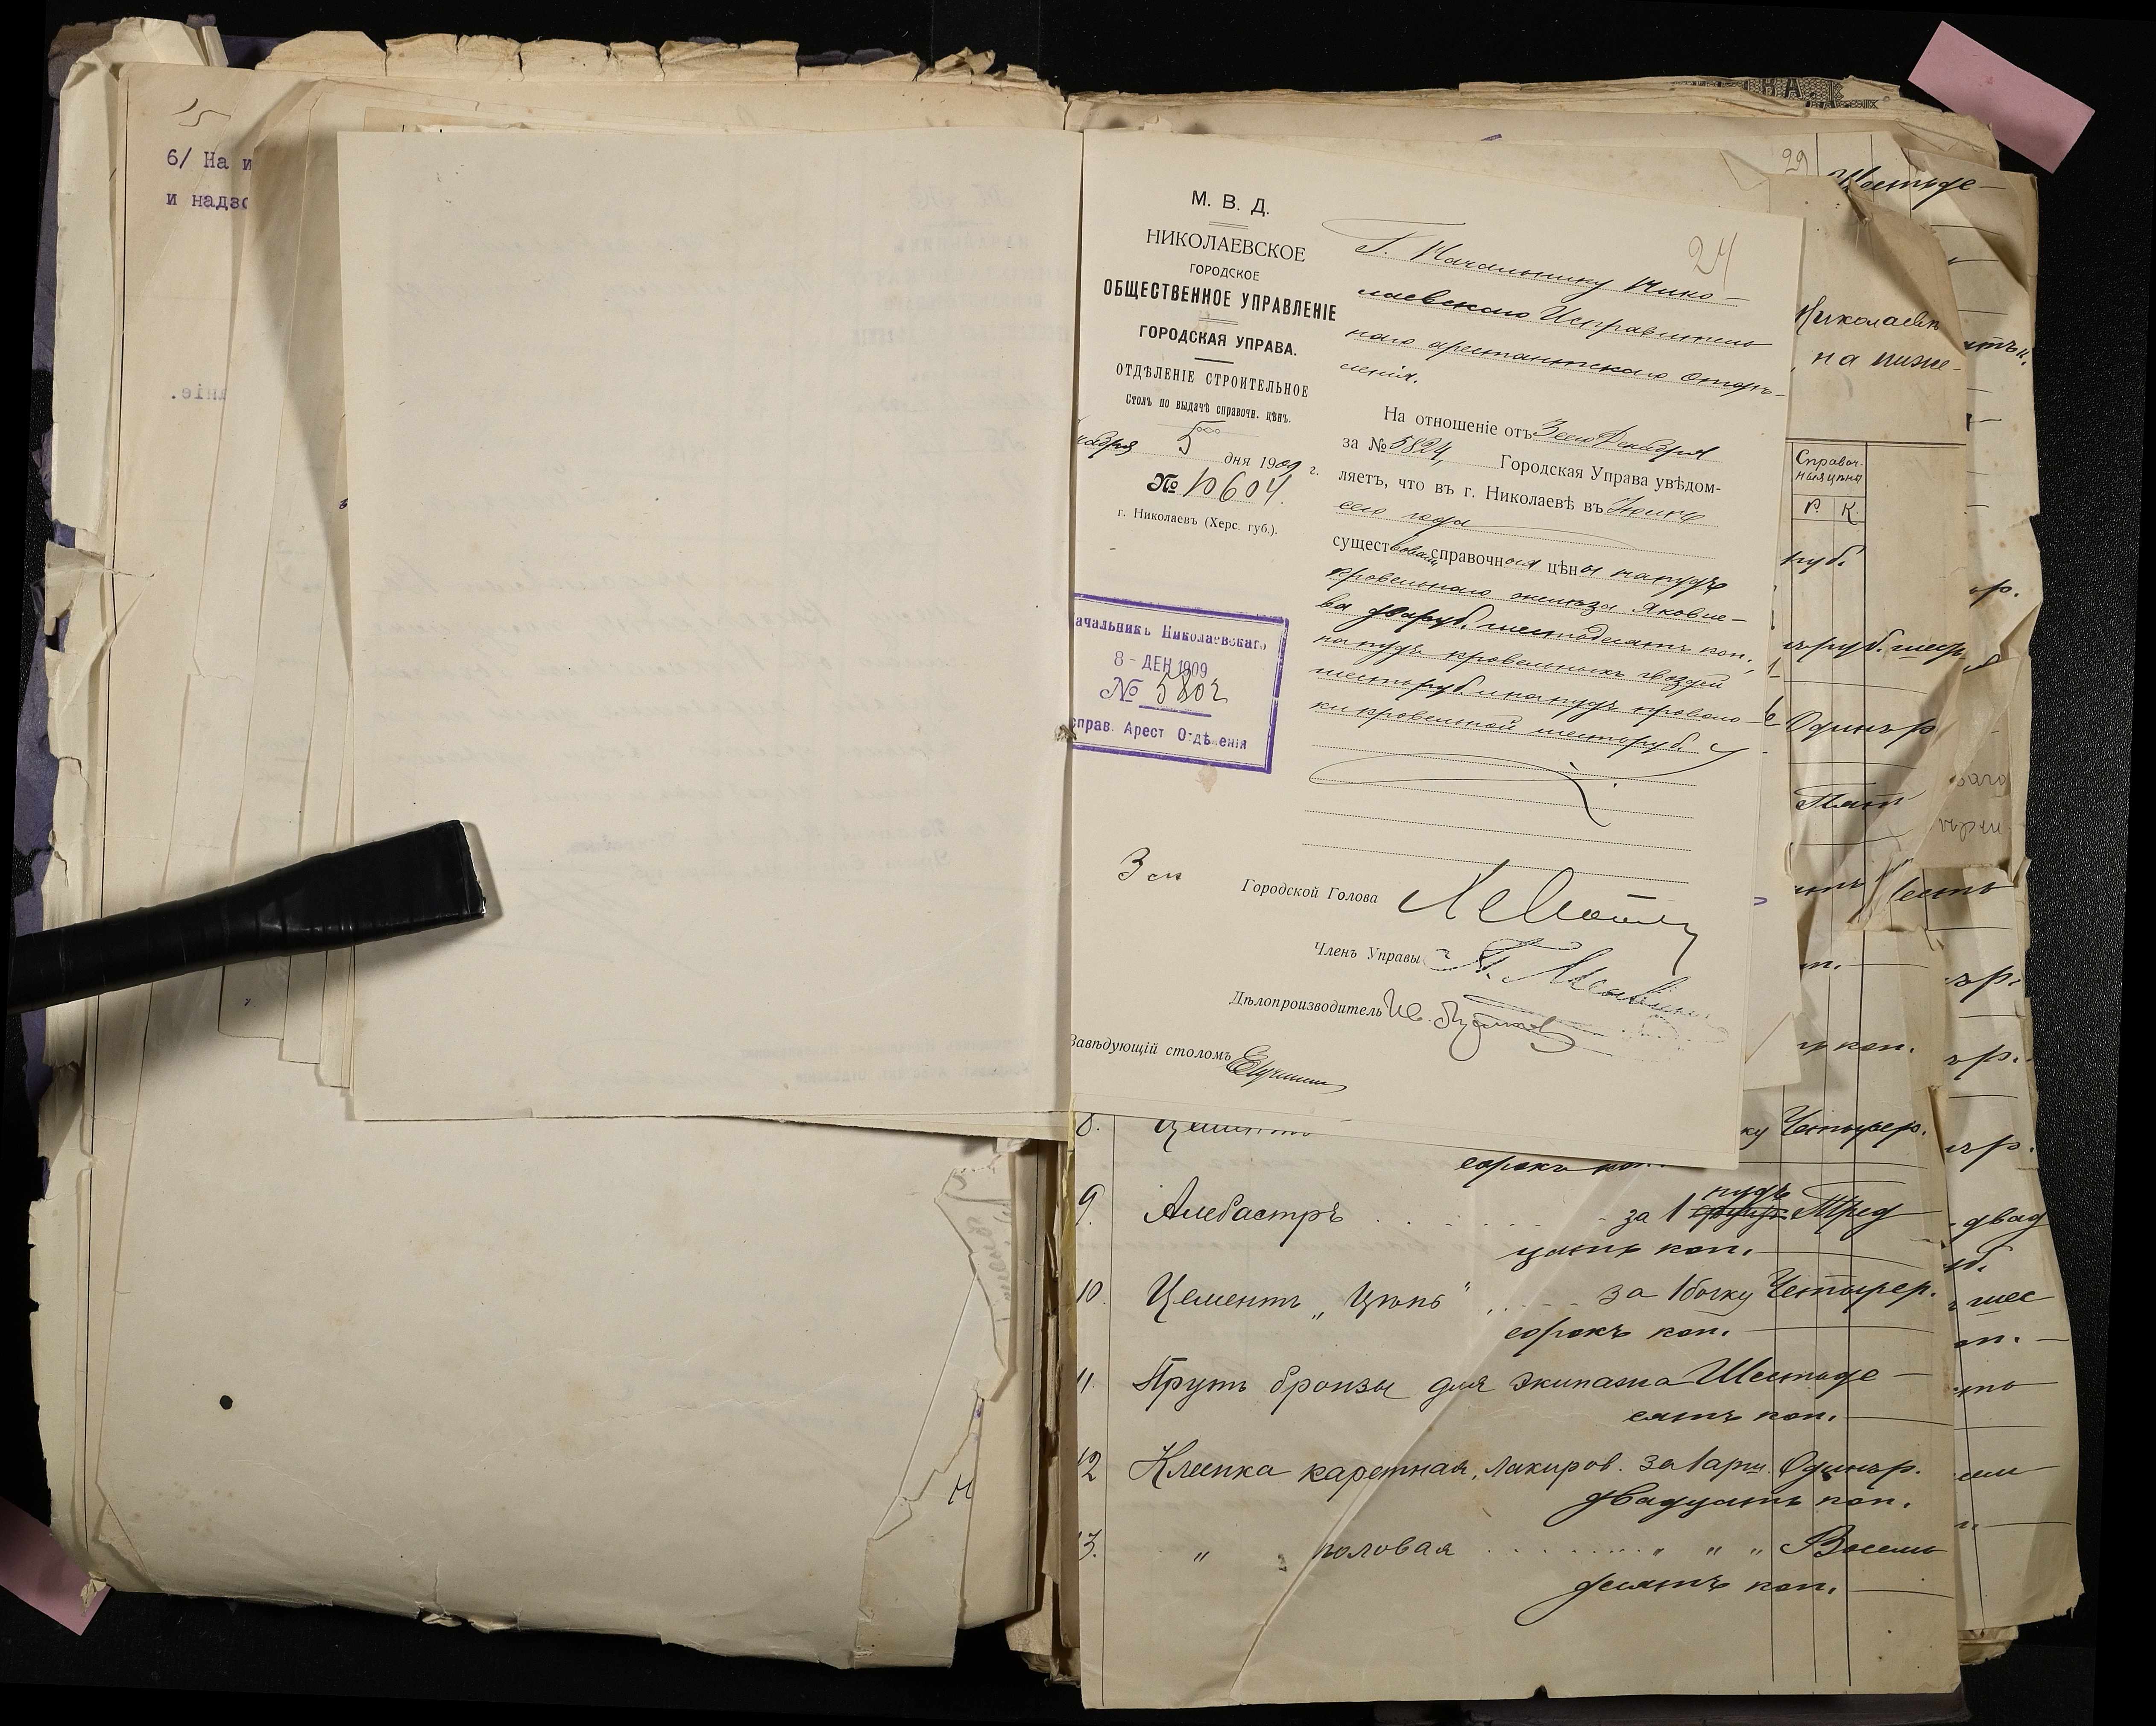 15
6/ На и
и надзо
24
М. В. Д.
НИКОЛАЕВСКОЕ
ГОРОДСКОЕ
ОБЩЕСТВЕННОЕ УПРАВЛЕНІЕ
ГОРОДСКАЯ УПРАВА.
ОТДѢЛЕНІЕ СТРОИТЕЛЬНОЕ
Столъ по выдачѣ справочн. цѣнъ.
кабря 5 дня 1909 г.
№ 10604
г. Николаевъ (Херс. губ.).
Г. Начальнику Нико-
лаевскаго Исправитель
наго арестантскаго отдѣ-
ленія.
На отношеніе отъ 3сего Декабря
за № 5824, Городская Управа увѣдом-
ляетъ, что въ г. Николаевѣ въ Іюнѣ
сего года
существовали справочная цѣны на пудъ
кровельнаго желѣза Яковле-
ва два руб. шестьдесятъ коп.,
на пудъ кровельныхъ гвоздей
шесть руб. и на пудъ проволо-
ки кровельной шесть руб.
ачальникъ Николаевскаго
8 - ДЕК 1909
№ 5802
справ. Арест Отдѣленія
Городской Голова
Членъ Управы
Дѣлопроизводитель
Завѣдующій столомъ
29
Шестьде-
Николаевѣ
на ниже-
Справоч-
ная цѣна
Р. К.
руб.
ъ руб. шест
Одинъ р
Пят
коп.
8. Цементъ
ку Четырер.
сорокъ коп.
9. Алебастръ за 1 пудъ Трид
цать коп.
10. Цементъ „Цѣпь" за 1 бочку Четырер.
сорокъ коп.
11. Прутъ бронзы для экипажа Шестьде-
сятъ коп.
12 Клеенка каретная, лакиров. за 1 арш. Одинъ р.
двадцать коп.
13. " половая " " " Восемь
десятъ коп.
двад
шес